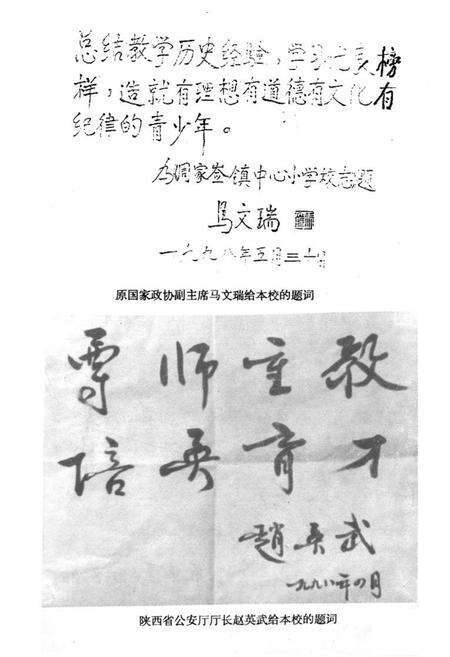 总结教学历史经验,学习之及榜
样,造就有理想有道德有文化有
纪律的青少年。
为涧家峇镇中心小学校志题
马文瑞
一九九八年五月三十日
原国家政协副主席马文瑞给本校的题词
尊师重教
培英育才
赵英武
一九九八年四月
陕西省公安厅厅长赵英武给本校的题词